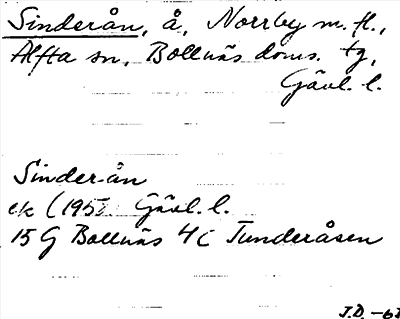 Sinderån, å, Norrby m. fl.,
Alfta sn, Bollnäs doms. tg,
Gävl. l.
Sinderån
ek (195 Gävl. l.
15 G Bollnäs 4 c Tunderåsen
J.D. -6